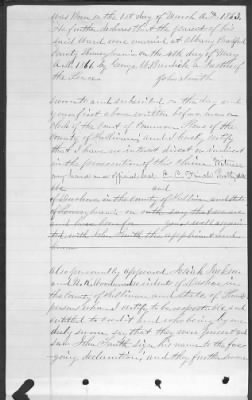 was born on the 1st day of March A.D. 1863.
He further declares that the parent of his
said Ward were married at Albany Bradford
County Pennsylvania on the 4th day of May
A.D. 1861 by George W. Burdick a Justice of
the Peace John Smith
Sworn to and subscribed on the day and
year first above written before me a
Clerk of the Court of Common Pleas of the
County of Sullivan, and I hereby certify
that I have no interest direct or indirect
in the prosecution of this claim. Witness
my hand and official seal
and
of in the county of Sullivan and State
of Pennsylvania
with John Smith the applicant and
Also personally appeared Jackson
and residents of Dushore in
the county of Sullivan and State of
persons whom I certify to be respectable and
entitled to credit and who being by me
duly sworn say that they were present and
saw John Smith sign his name to the fore-
going declaration; and they further swear